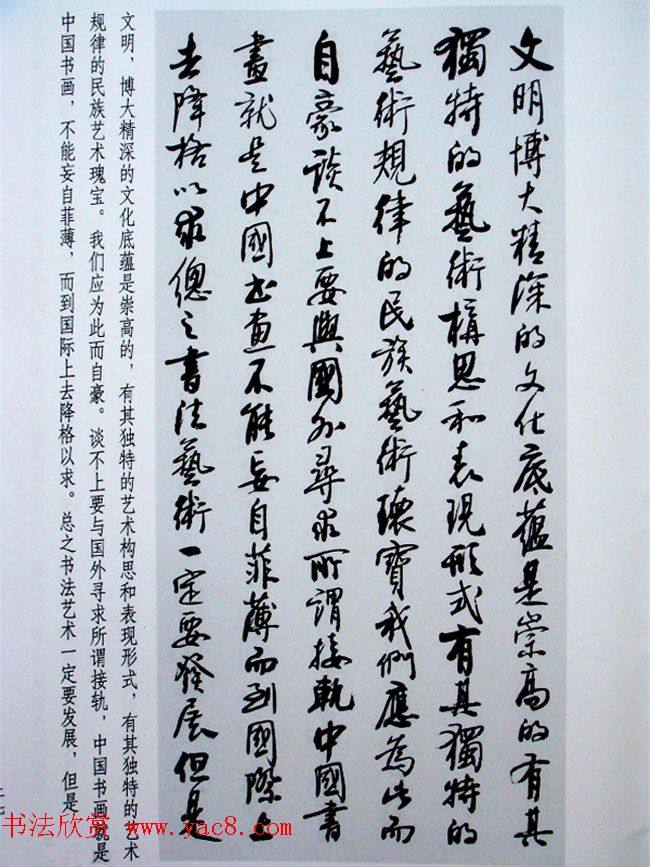 文明博大精深的文化底蘊是崇高的有其
獨特的藝術構思和表現形式有其獨特的
藝術規律的民族藝術瓌寶我們應為此而
自豪談不上要與國外尋求所謂接軌中國書
畫就是中國书畫不能妄自菲薄而到國際上
去降格以求總之書法藝術一定要發展但是
文明，博大精深的文化底蕴是崇高的，有其独特的艺术构思和表现形式，有其独特的艺术
规律的民族艺术瑰宝。我们应为此而自豪。谈不上要与国外寻求所谓接轨，中国书画就是
中国书画，不能妄自菲薄，而到国际上去降格以求。总之书法艺术一定要发展，但是
书法欣赏 www.yac8.com